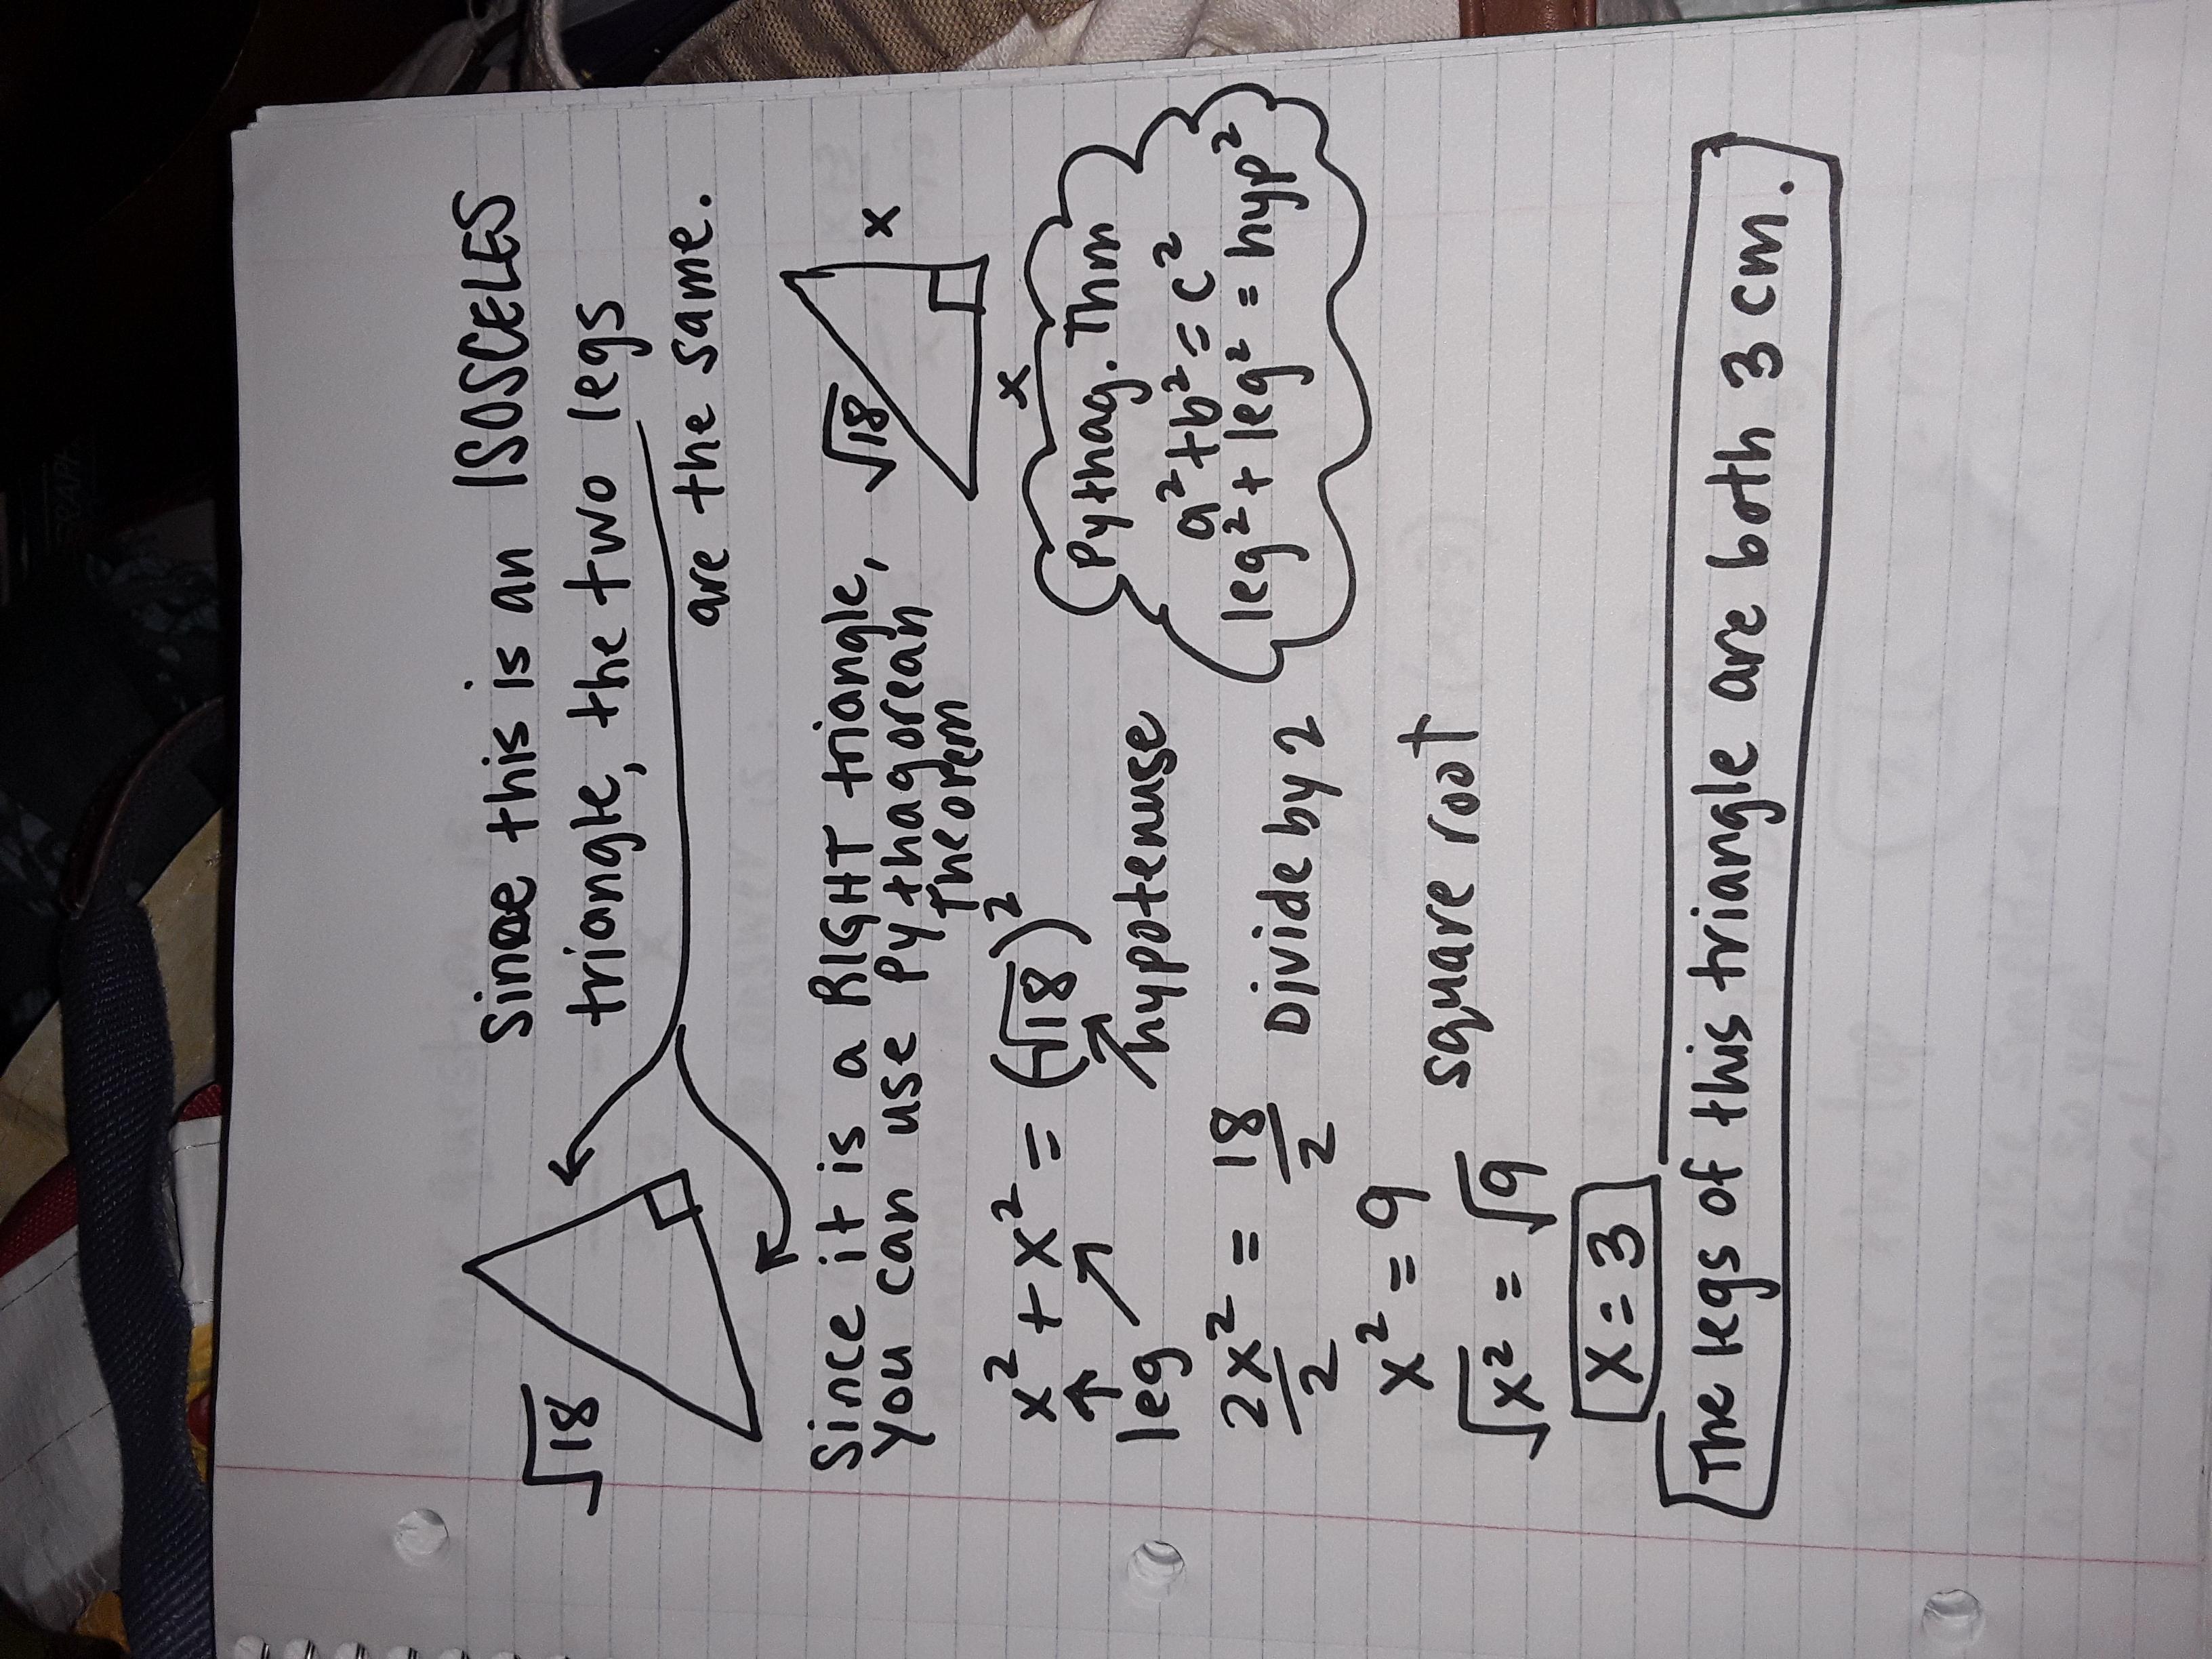 √18
Since this is an ISOSCELES
triangle, the two legs
are the same.
Since it is a RIGHT triangle,
you can use Pythagorean
Theorem
√18
x
x
x² + x² = (√18)²
leg
hyppotenuse
Pythag. Thm
a²+b²=c²
leg²+leg²=hyp²
2x²/2 = 18/2 Divide by 2
x² = 9
√x² = √9 square root
x=3
The legs of this triangle are both 3 cm.